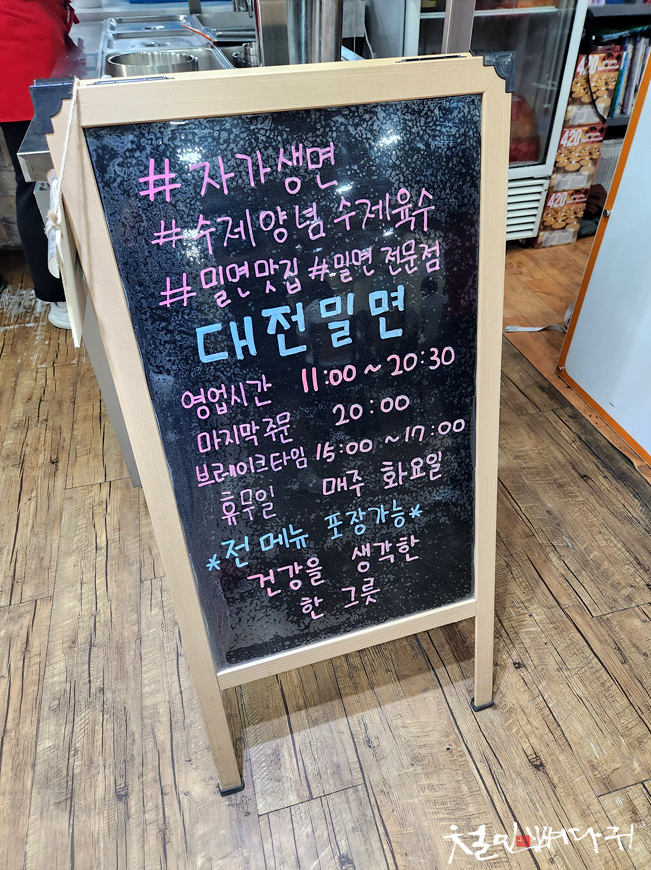 #자가생면
#수제양념 수제육수
#밀면맛집 #밀면 전문점
대전밀면
영업시간 11:00 ~ 20:30
마지막주문 20:00
브레이크타임 15:00 ~ 17:00
휴무일 매주 화요일
*전메뉴 포장가능*
건강을 생각한
한 그릇
420
420
420